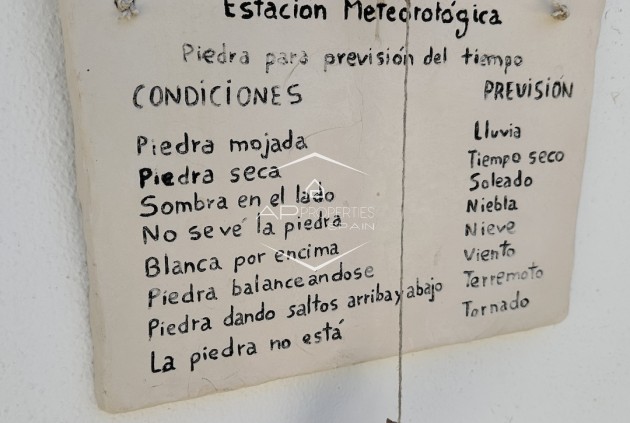 Estacion Meteorológica
Piedra para previsión del tiempo
CONDICIONES PREVISIÓN
Piedra mojada Lluvia
Piedra seca Tiempo seco
Sombra en el lado Soleado
No se vé la piedra Niebla
Blanca por encima Nieve
Piedra balanceandose Viento
Piedra dando saltos arriba y abajo Terremoto
La piedra no está Tornado
AP PROPERTIES
SPAIN